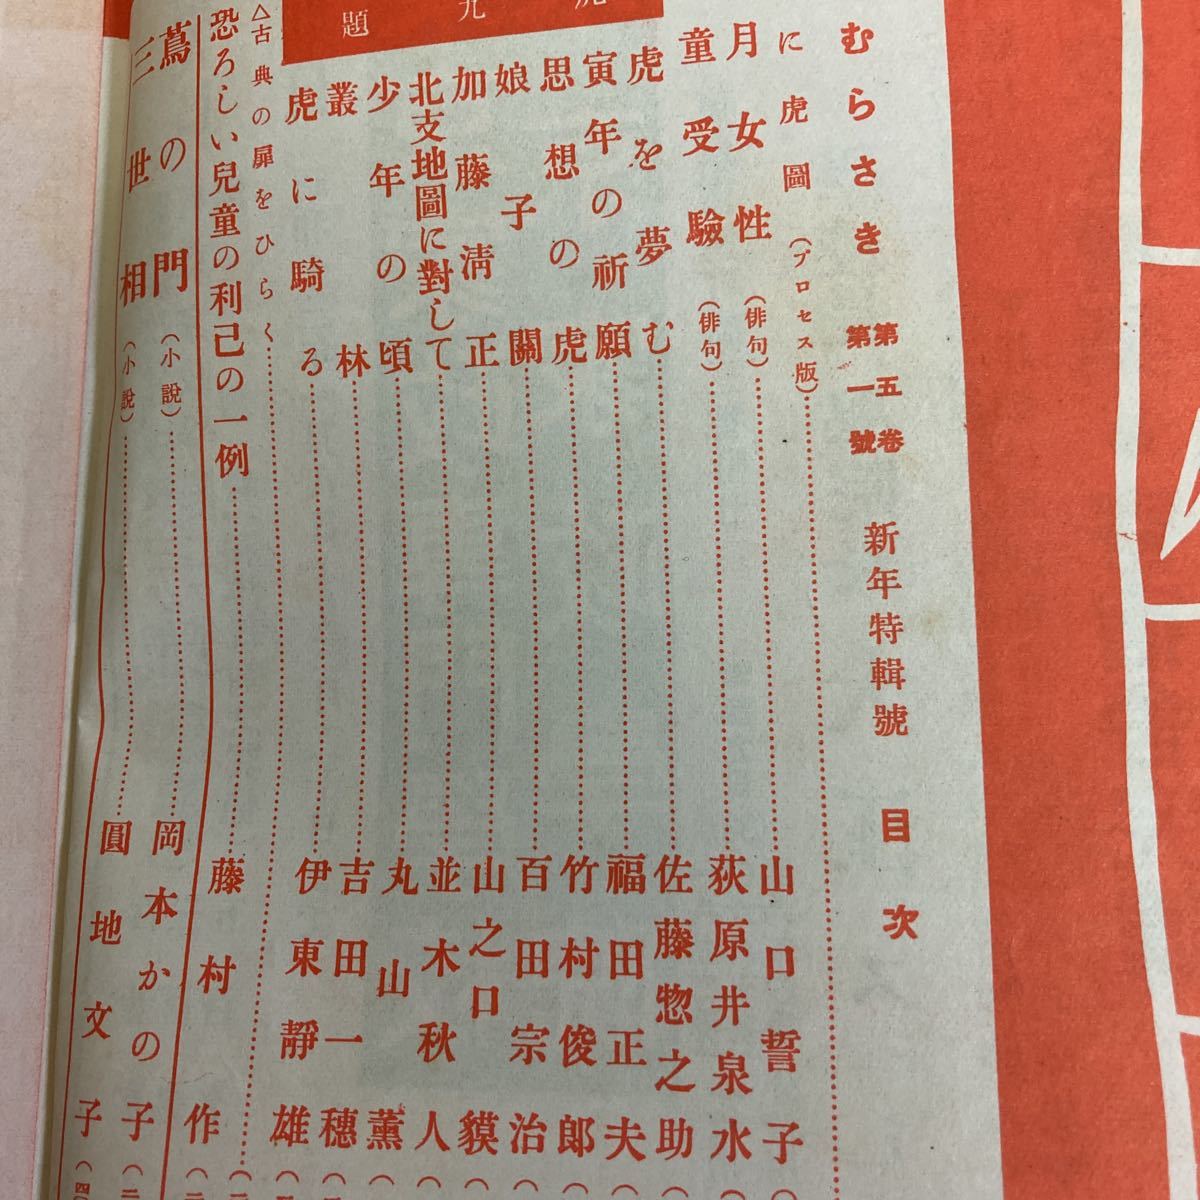 むらさき 第五卷 第一號 新年特輯號 目次
に虎圖(プロセス版)
月女性(俳句) 山口誓子
童受驗(俳句) 荻原井泉水
虎を夢む 佐藤惣之助
寅年の祈願 福田正夫
思想の虎 竹村俊郎
娘子關 百田宗治
加藤淸正 山之口貘
北支地圖に對して 並木秋人
少年の頃 丸山薰
叢林 吉田一穗
虎に騎る 伊東靜雄
九題
△古典の扉をひらく
恐ろしい兒童の利己の一例 藤村作
蔦の門(小說) 岡本かの子
三世相(小說) 圓地文子